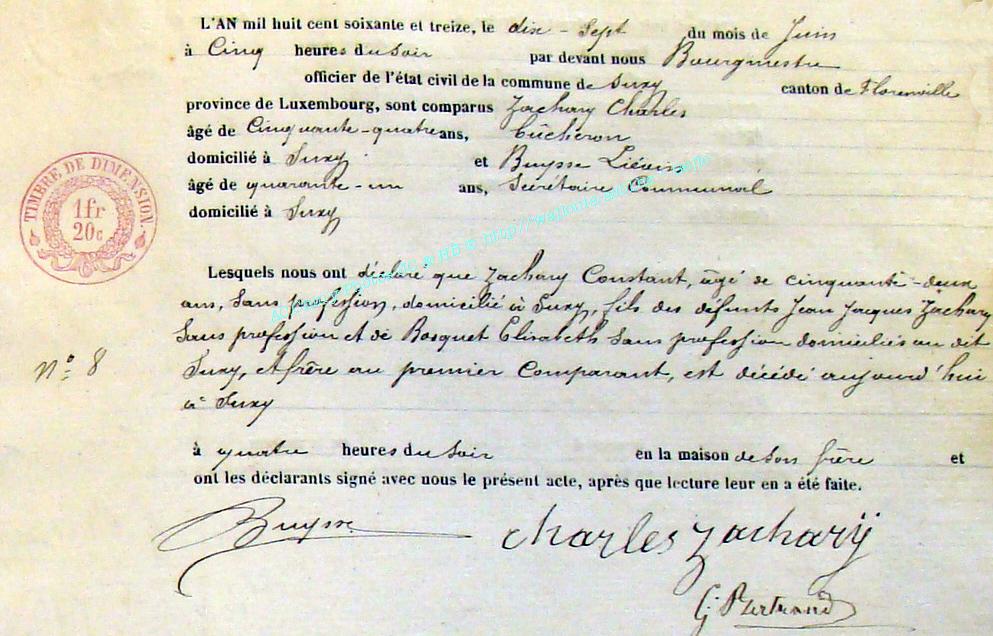 L'AN mil huit cent soixante et treize, le dix-Sept du mois de Juin
à Cinq heures du Soir par devant nous Bourgmestre
officier de l'état civil de la commune de Suxy canton de Florenville
province de Luxembourg, sont comparus Zachary Charles
âgé de Cinquante-quatre ans, bûcheron
domicilié à Suxy et Buysse Liévin
âgé de quarante-un ans, Secrétaire Communal
domicilié à Suxy
TIMBRE DE DIMENSION.
1fr
20c
Lesquels nous ont déclaré que Zachary Constant, âgé de cinquante-deux
ans, Sans profession, domicilié à Suxy, fils des défunts Jean Jacques Zachary
Sans profession et de Bosquet Elisabeth Sans profession domiciliés au dit
Nº 8
Suxy, et frère au premier Comparant, est décédé aujourd'hui
à Suxy
à quatre heures du Soir en la maison de Son frère et
ont les déclarants signé avec nous le présent acte, après que lecture leur en a été faite.
Buysse charles zacharÿ
G. Bertrand